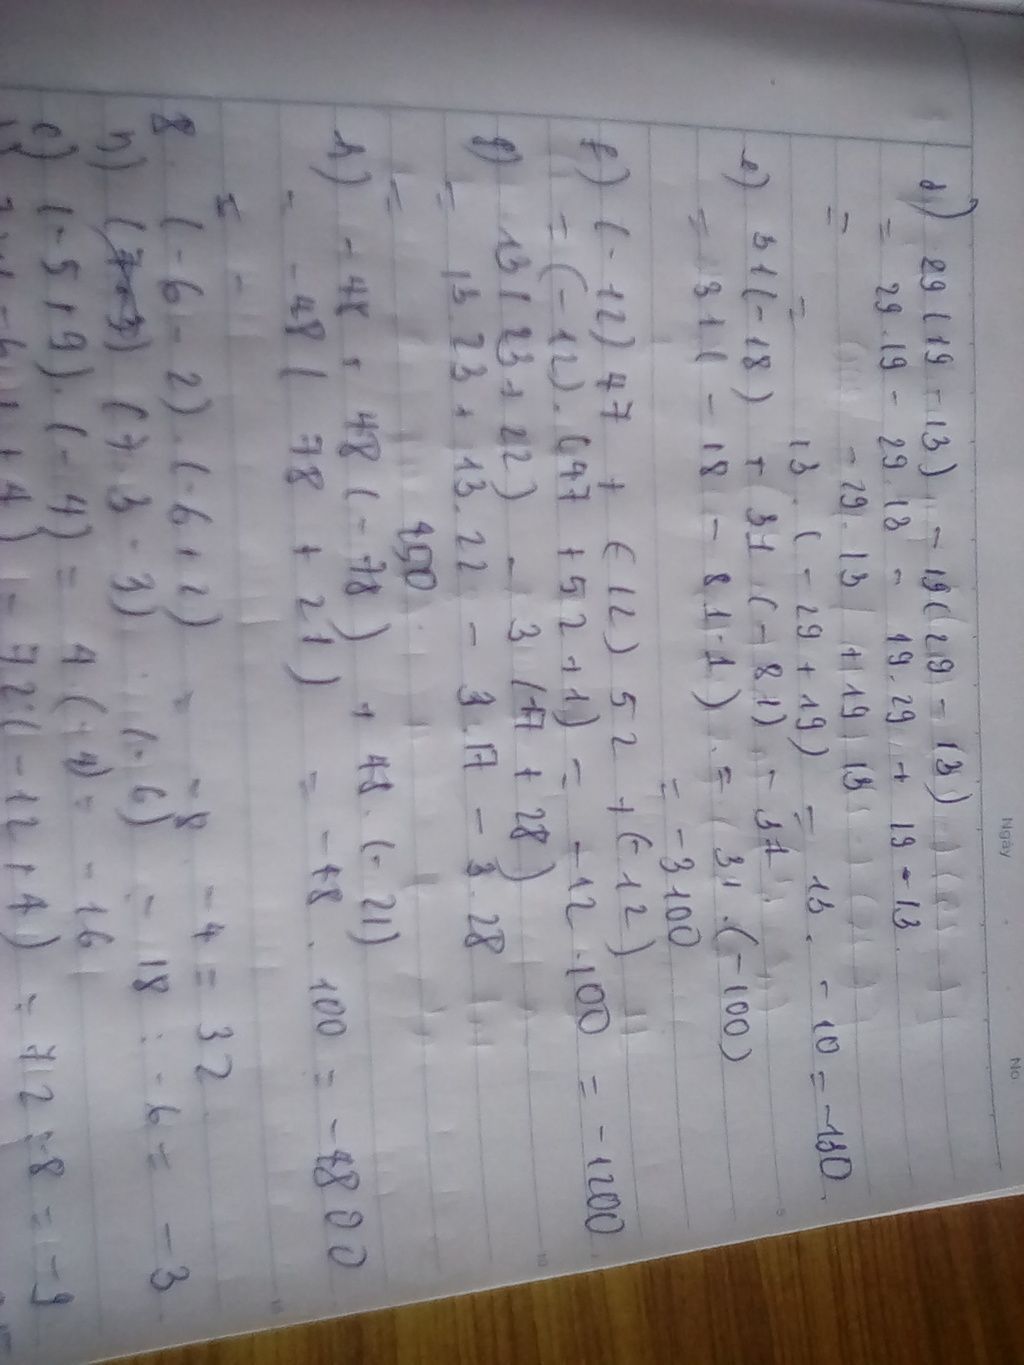 Ngày
No
d) 29(19 - 13) - 19(29 - 13)
= 29.19 - 29.13 - 19.29 + 19.13
= - 29.13 + 19 13
= 13.(-29 + 19) = 13. -10 = -130
e) 31(-18) + 31(-81) - 31
= 31(-18 - 81-1) = 31.(-100)
= -3100
f) (-12)47 + (12) 52 + (-12)
= (-12).(47 + 52 + 1) = -12 .100 = -1200
g) 13(23 + 22) - 3(17 + 28)
= 13.23 + 13.22 - 3.17 - 3.28
= 450
h) -48 + 48(-78) + 48.(-21)
= -48( 78 + 21) = -48 . 100 = -4800
8. (-6 - 2).(-6 + 2) = -8 - 4 = 32
= -
b) (7.3 - 3) : (-6) = 18 : -6 = -3
c) (-5 + 9).(-4) = 4(-4) = -16
= 72(-12 + 4) = 72 : -8 = -9